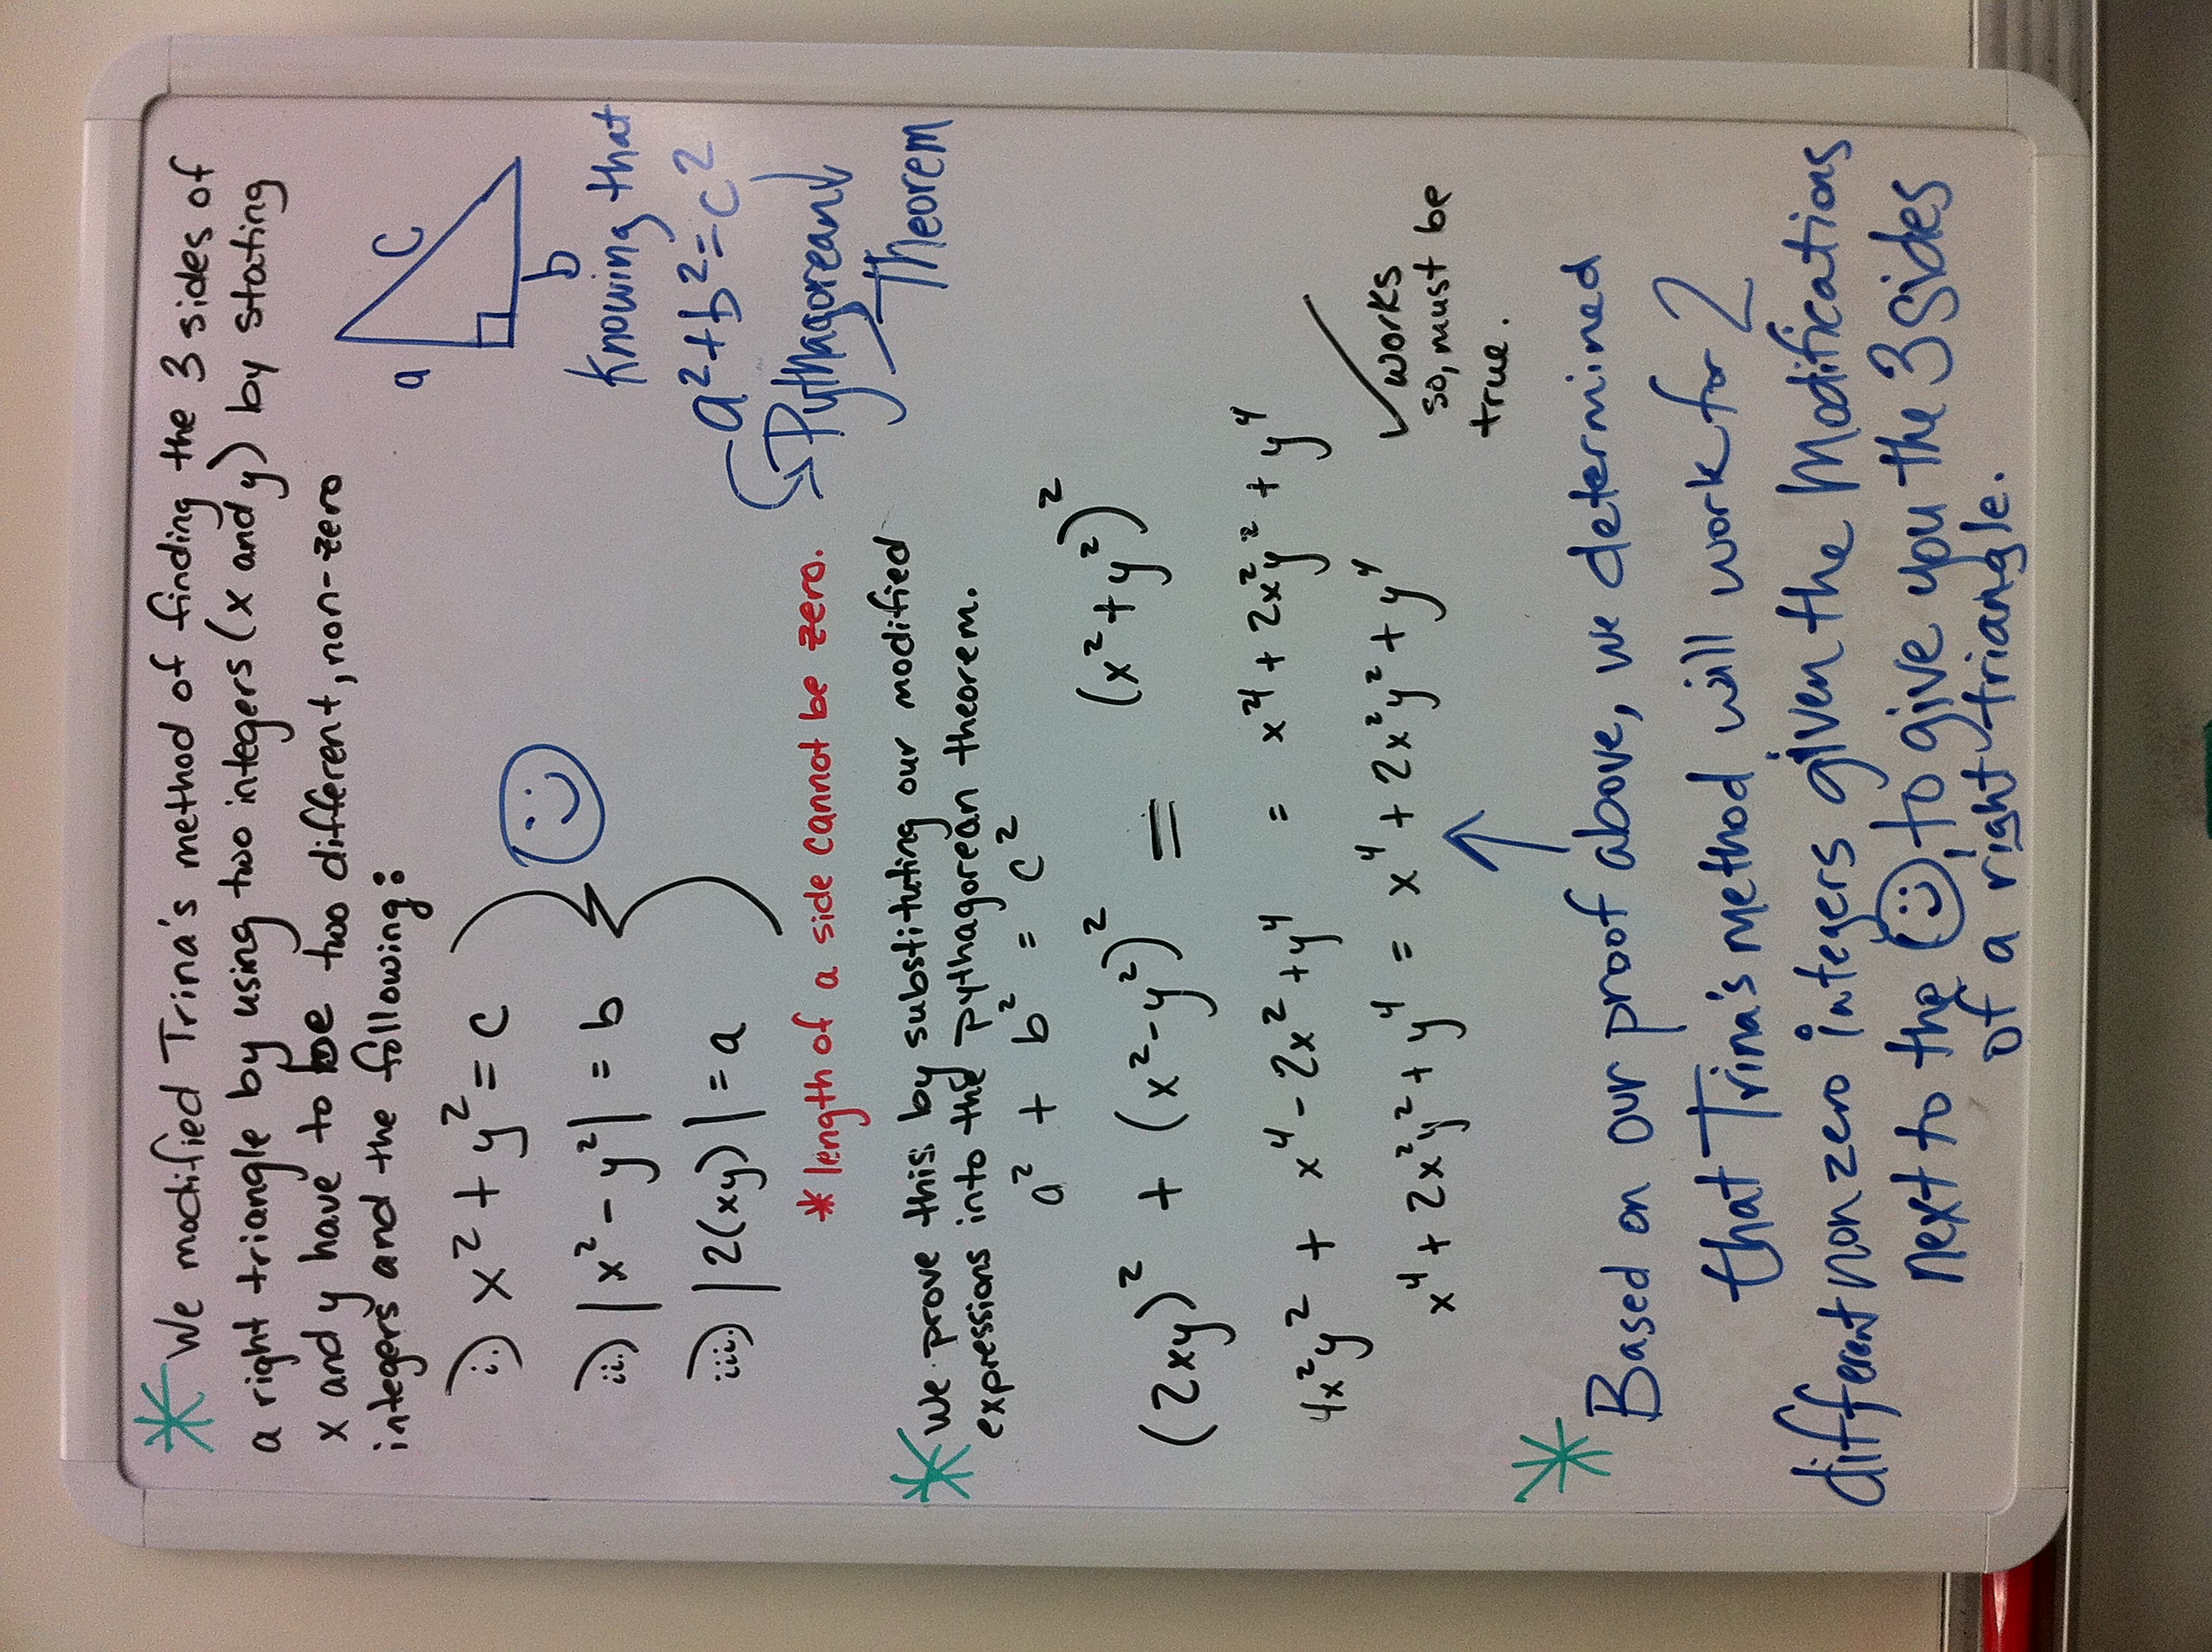 * We modified Trina's method of finding the 3 sides of
a right triangle by using two integers (x and y) by stating
x and y have to be two different, non-zero
integers and the following:
i.) x² + y² = c
ii.) |x² - y²| = b
iii.) |2(xy)| = a
a
c
b
Knowing that
a² + b² = c²
Pythagorean
Theorem
* length of a side cannot be zero.
* We prove this by substituting our modified
expressions into the pythagorean theorem.
a² + b² = c²
(2xy)² + (x² - y²)² = (x² + y²)²
4x²y² + x⁴ - 2x² + y⁴ = x⁴ + 2x²y² + y⁴
x⁴ + 2x²y² + y⁴ = x⁴ + 2x²y² + y⁴
✓ works
so, must be
true.
* Based on our proof above, we determined
that Trina's method will work for 2
different nonzero integers given the modifications
next to the ☺, to give you the 3 sides
of a right triangle.